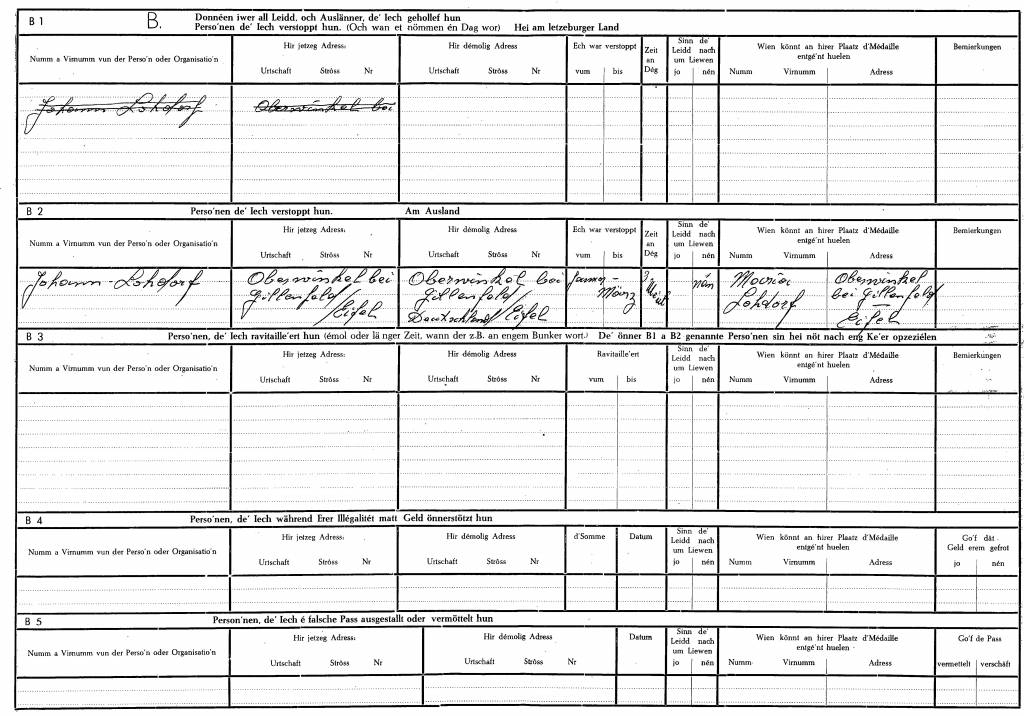 B 1 B. Donnéen iwer all Leidd, och Auslänner, de' Iech gehollef hun
Perso'nen de' Iech verstoppt hun. (Och wan et nömmen én Dag wor) Hei am letzeburger Land
Numm a Virnumm vun der Perso'n oder Organisatio'n
Hir jetzeg Adress:
Urtschaft Ströss Nr
Hir démolig Adress
Urtschaft Ströss Nr
Ech war verstoppt
vum bis
Zeit
an
Dég
Sinn de'
Leidd nach
um Liewen
jo nén
Wien könnt an hirer Plaatz d'Médaille
entgé'nt huelen
Numm Virnumm Adress
Bemierkungen
Johann Lohdorf Oberwinkel bei
B 2 Perso'nen de' Iech verstoppt hun. Am Ausland
Numm a Virnumm vun der Perso'n oder Organisatio'n
Hir jetzeg Adress:
Urtschaft Ströss Nr
Hir démolig Adress
Urtschaft Ströss Nr
Ech war verstoppt
vum bis
Zeit
an
Dég
Sinn de'
Leidd nach
um Liewen
jo nén
Wien könnt an hirer Plaatz d'Médaille
entgé'nt huelen
Numm Virnumm Adress
Bemierkungen
Johann Lohdorf
Oberwinkel bei
Gillenfeld
/Eifel
Oberwinkel bei
Gillenfeld
Deutschland/Eifel
Januar -
März
3
nén
Maria
Lohdorf
Oberwinkel
bei Gillenfeld
Eifel
B 3 Perso'nen, de' Iech ravitaille'ert hun (émol oder lä nger Zeit, wann der z.B. an engem Bunker wort.) De' önner B1 a B2 genannte Perso'nen sin hei nöt nach eng Ke'er opzeziélen
Numm a Virnumm vun der Perso'n oder Organisatio'n
Hir jetzeg Adress:
Urtschaft Ströss Nr
Hir démolig Adress
Urtschaft Ströss Nr
Ravitaille'ert
vum bis
Sinn de'
Leidd nach
um Liewen
jo nén
Wien könnt an hirer Plaatz d'Médaille
entgé'nt huelen
Numm Virnumm Adress
Bemierkungen
B 4 Perso'nen, de' Iech während Erer Illégalitét matt Geld önnerstötzt hun
Numm a Virnumm vun der Perso'n oder Organisatio'n
Hir jetzeg Adress:
Urtschaft Ströss Nr
Hir démolig Adress
Urtschaft Ströss Nr
d'Somme
Datum
Sinn de'
Leidd nach
um Liewen
jo nén
Wien könnt an hirer Plaatz d'Médaille
entgé'nt huelen
Numm Virnumm Adress
Go'f dät
Geld erem gefrot
jo nén
B 5 Person'nen, de' Iech é falsche Pass ausgestallt oder vermöttelt hun
Numm a Virnumm vun der Perso'n oder Organisatio'n
Hir jetzeg Adress:
Urtschaft Ströss Nr
Hir démolig Adress
Urtschaft Ströss Nr
Datum
Sinn de'
Leidd nach
um Liewen
jo nén
Wien könnt an hirer Plaatz d'Médaille
entgé'nt huelen
Numm Virnumm Adress
Go'f de Pass
vermettelt verschäft